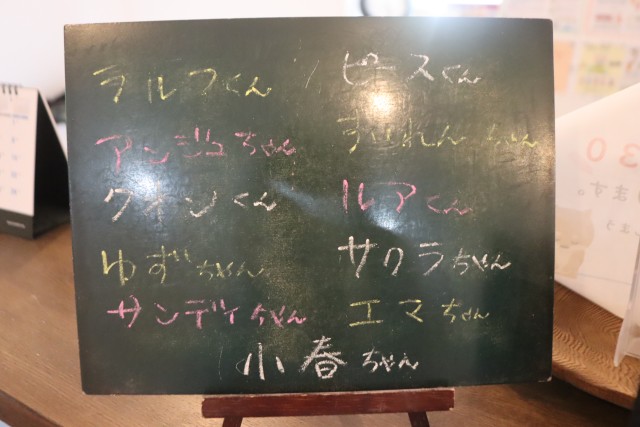 ラルフくん
アンジュちゃん
クオンくん
ゆずちゃん
サンディちゃん
ピースくん
すみれんちゃん
ルアくん
サクラちゃん
エマちゃん
小春ちゃん
30
ます。